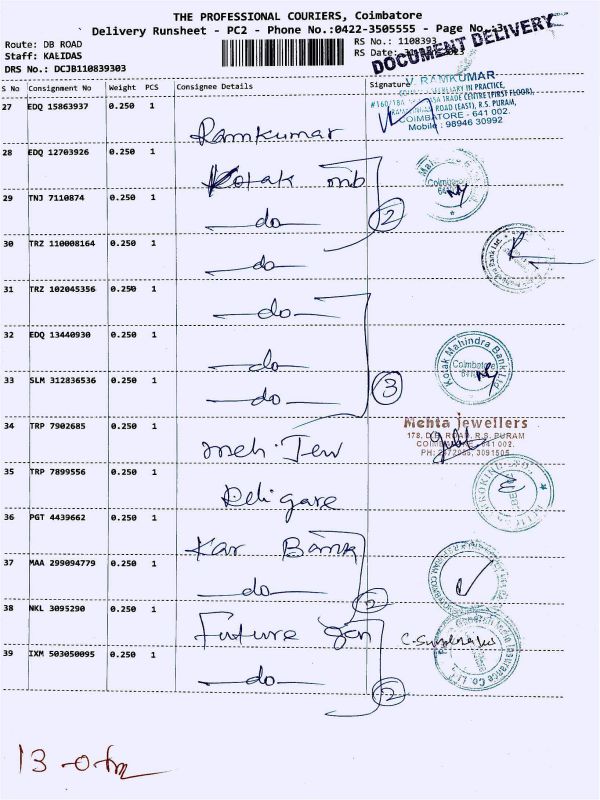 THE PROFESSIONAL COURIERS, Coimbatore
Delivery Runsheet - PC2 - Phone No.:0422-3505555 - Page No.:3
DOCUMENT DELIVERY
Route: DB ROAD
Staff: KALIDAS
DRS No.: DCJB110839303
RS No.: 1108393
RS Date:
S No Consignment No Weight PCS Consignee Details Signature
V. RAMKUMAR
IN PRACTICE,
TRADE CENTRE (FIRST FLOOR),
ROAD (EAST), R.S. PURAM,
COIMBATORE - 641 002.
Mobile : 98946 30992
27 EDQ 15863937 0.250 1 Ramkumar
28 EDQ 12703926 0.250 1 Kotak mb
Coimbatore
29 TNJ 7110874 0.250 1 do 2
30 TRZ 110008164 0.250 1 do
31 TRZ 102045356 0.250 1 do
32 EDQ 13440930 0.250 1 do
Kotak Mahindra Bank Ltd
Coimbatore
33 SLM 312836536 0.250 1 do 3
34 TRP 7902685 0.250 1 meh. Jew
Mehta jewellers
178, D.B. ROAD, R.S. PURAM
641 002.
3091505
35 TRP 7899556 0.250 1 Religare
36 PGT 4439662 0.250 1 Kar Bank
37 MAA 299094779 0.250 1 do 2
38 NKL 3095290 0.250 1 Future gen
Insurance Co. Ltd
39 IXM 503050095 0.250 1 do 2
13